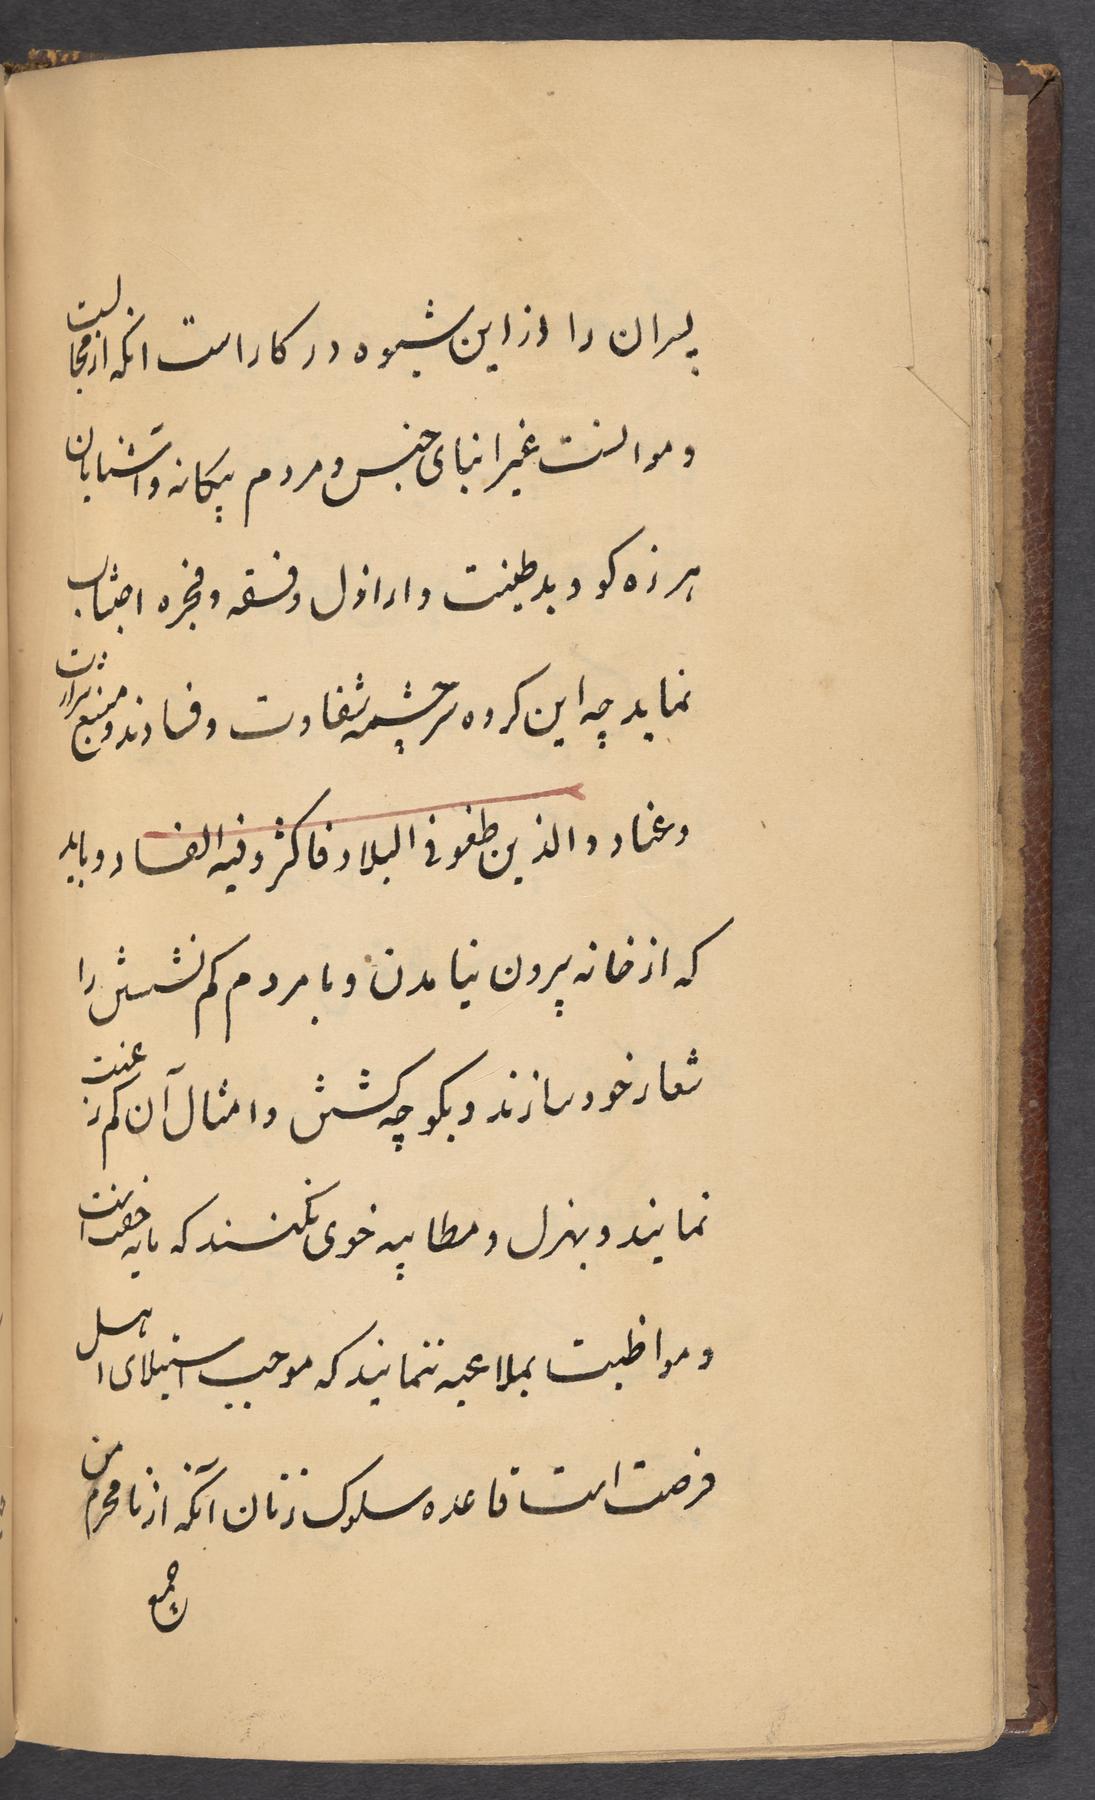 پسران را از این شیوه در کار است انکه از مجالست
و موانست غیر ابنای جنس و مردم بیکانه و اشنایان
هرزه کو و بد طینت و اراذل و فسقه و فجره اجتناب
نماید چه این کروه سرچشمه شقاوت و فسادند و منبع شرارت
و عناد و الذین طغو فی البلاد فاکثرو فیه الفساد و باید
که از خانه بیرون نیامدن و با مردم کم نشستن را
شعار خود سازند و بکوچه کشتن و امثال آن کم رغبت
نمایند و بهزل و مطایبه خوی نکنند که مایه خفت است
و مواظبت بملاعبه ننمایند که موجب استیلای اهل
فرصت است قاعده سلوک زنان آنکه از نامحرم من
جمیع